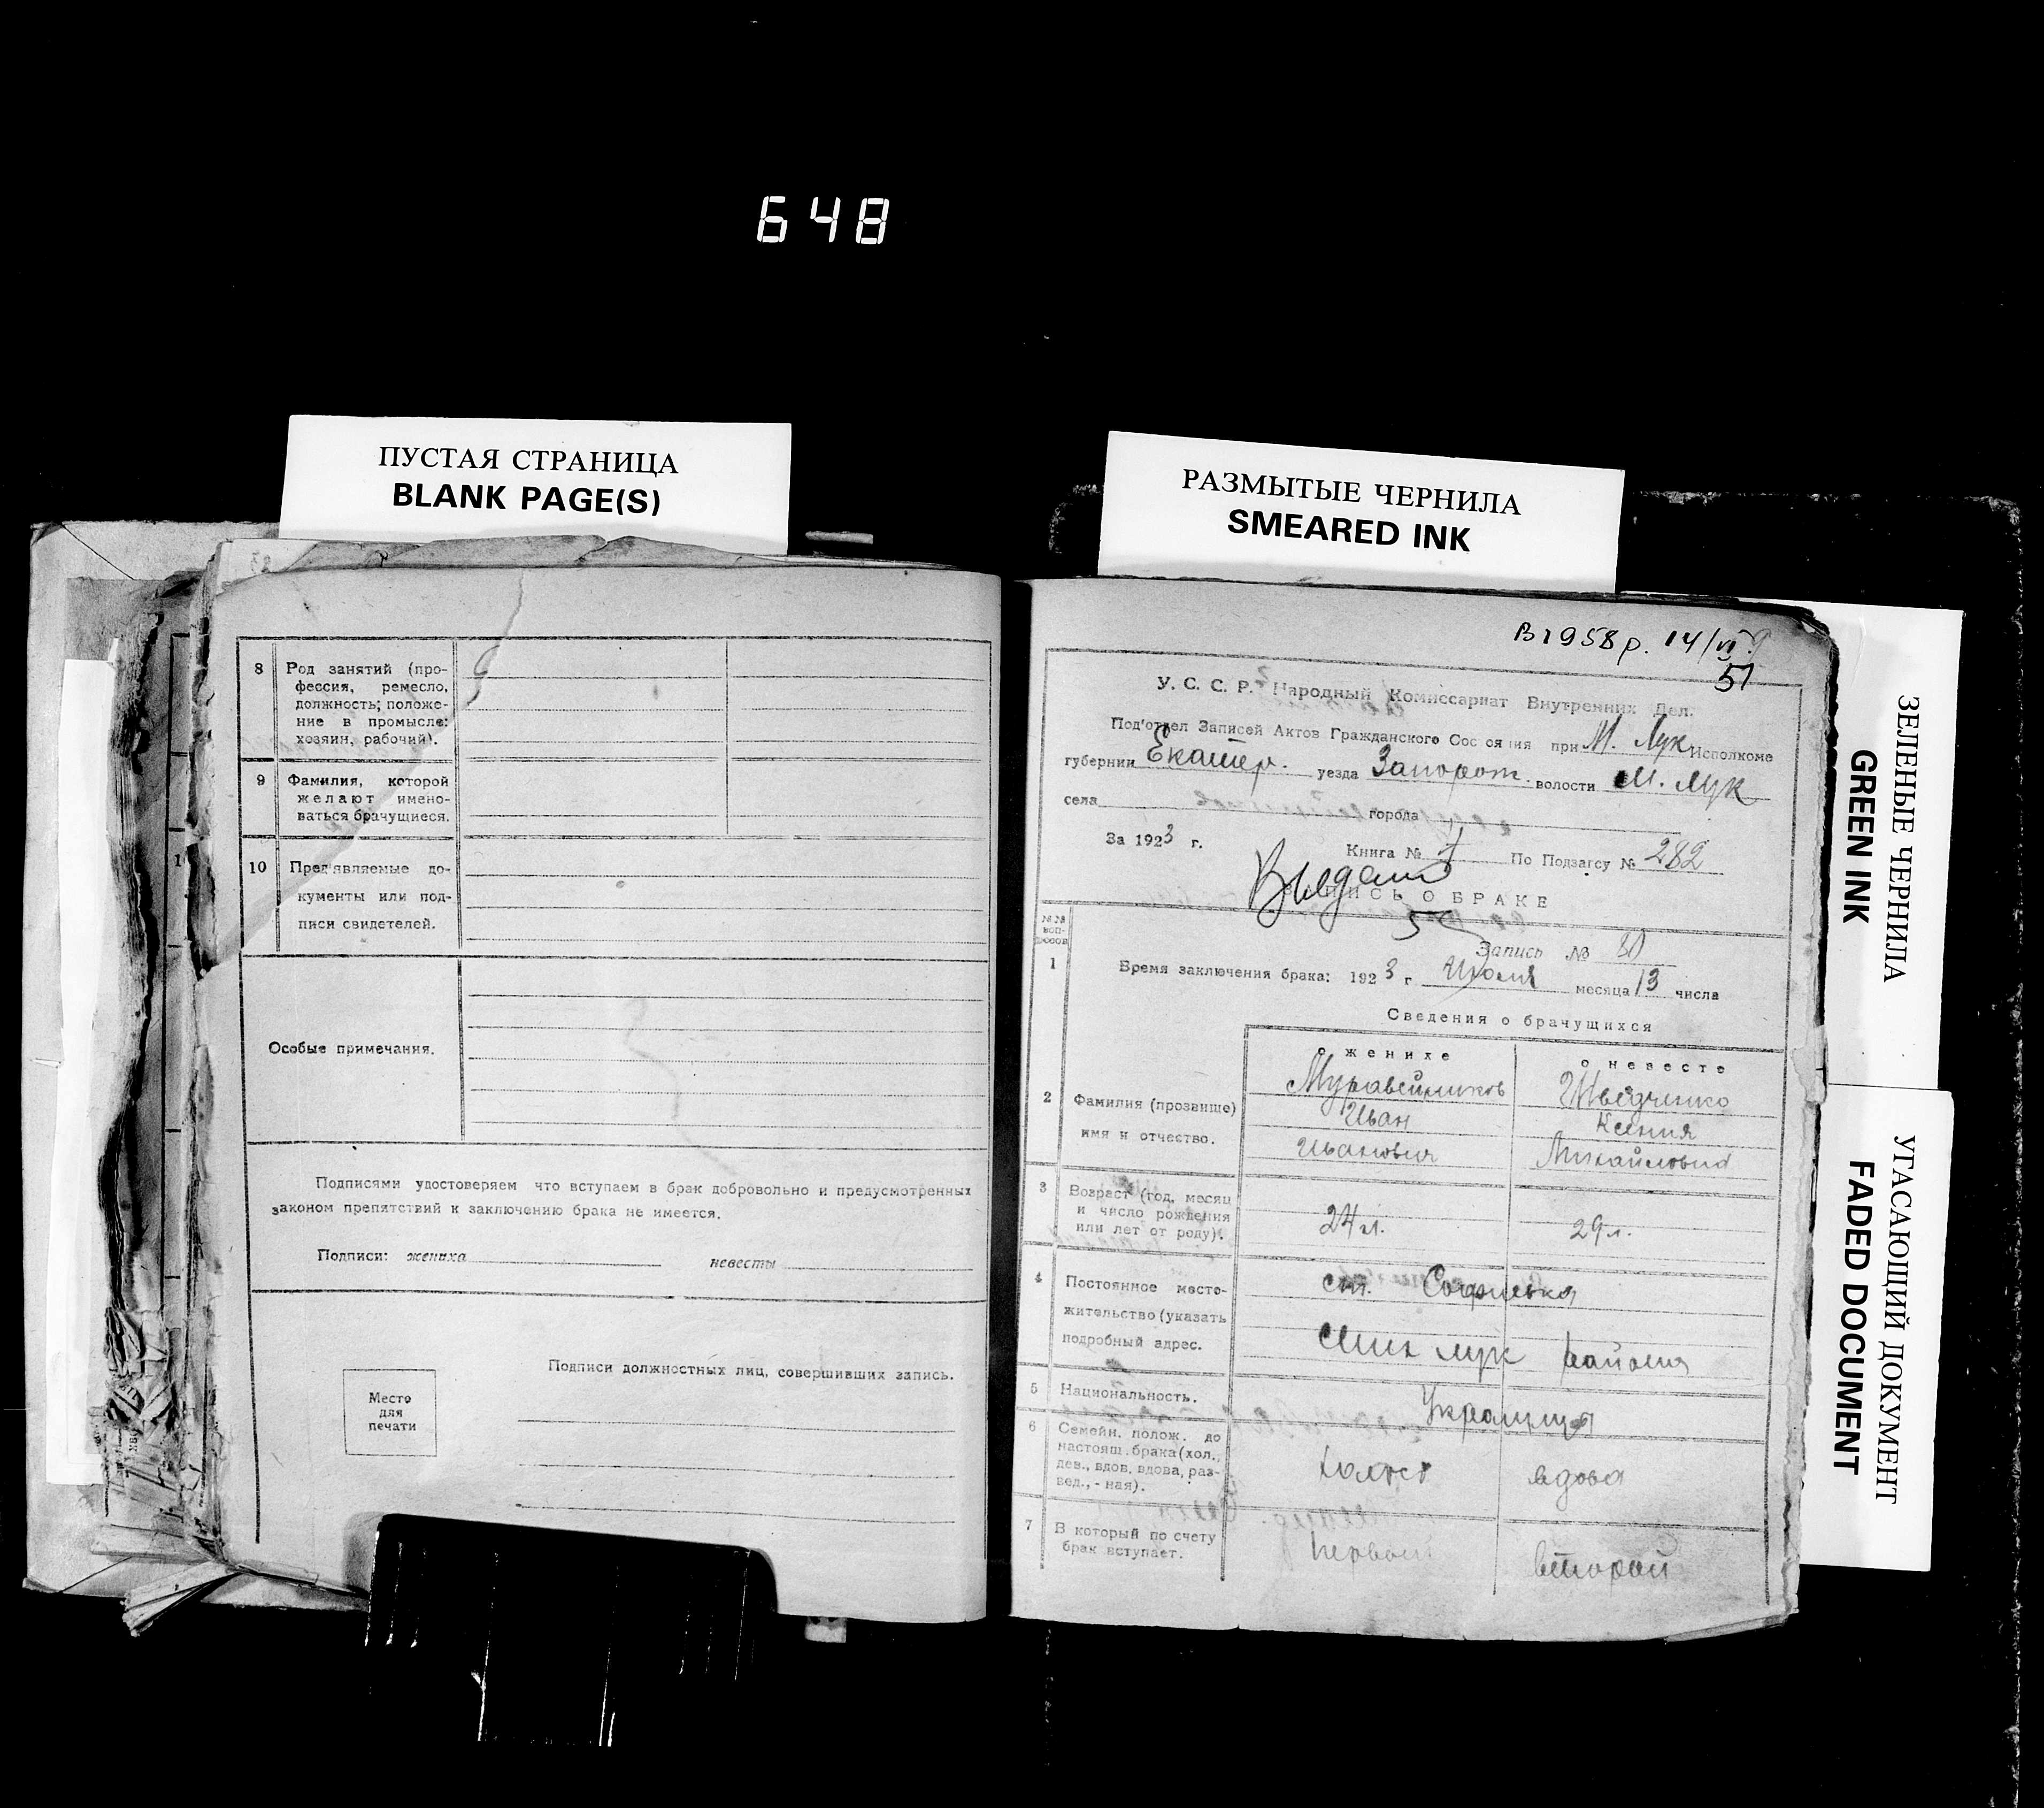 648
ПУСТАЯ СТРАНИЦА
BLANK PAGE(S)
РАЗМЫТЫЕ ЧЕРНИЛА
SMEARED INK
ЗЕЛЕНЫЕ ЧЕРНИЛА
GREEN INK
УГАСАЮЩИЙ ДОКУМЕНТ
FADED DOCUMENT
8 Род занятий (про-
фессия, ремесло,
должность; положе-
ние в промысле:
хозяин, рабочий).
9 Фамилия, которой
желают имено-
ваться брачущиеся.
10 Пред'являемые до-
кументы или под-
писи свидетелей.
Особые примечания.
Подписями удостоверяем что вступаем в брак добровольно и предусмотренных
законом препятствий к заключению брака не имеется.
Подписи: жениха невесты
Подписи должностных лиц, совершивших запись.
Место
для
печати
В 1958 р. 14/VI
51
У. С. С. Р. Народный Комиссариат Внутренних Дел.
Под'отдел Записей Актов Гражданского Состояния при М. Лук Исполкоме
губернии Екатер. уезда Запорож. волости М. Лук
села города
За 1923 г. Книга № По Подзагсу № 282
Выдано
ЗАПИСЬ О БРАКЕ
№№ воп-
росов
Запись №
1 Время заключения брака: 1923 г. Июля месяца 13 числа
Сведения о брачущихся
о женихе о невесте
2 Фамилия (прозвище)
имя и отчество.
Муравейников Шведченко
Иван Ксения
Иванович Михайловна
3 Возраст (год, месяц
и число рождения
или лет от роду).
24 л. 29 л.
4 Постоянное место-
жительство (указать
подробный адрес.
Софиевка
Мих Лук района
5 Национальность. Украинця
6 Семейн. полож. до
настоящ. брака (хол.,
дев., вдов, вдова, раз-
вед., - ная).
холост вдова
7 В который по счету
брак вступает.
первый второй